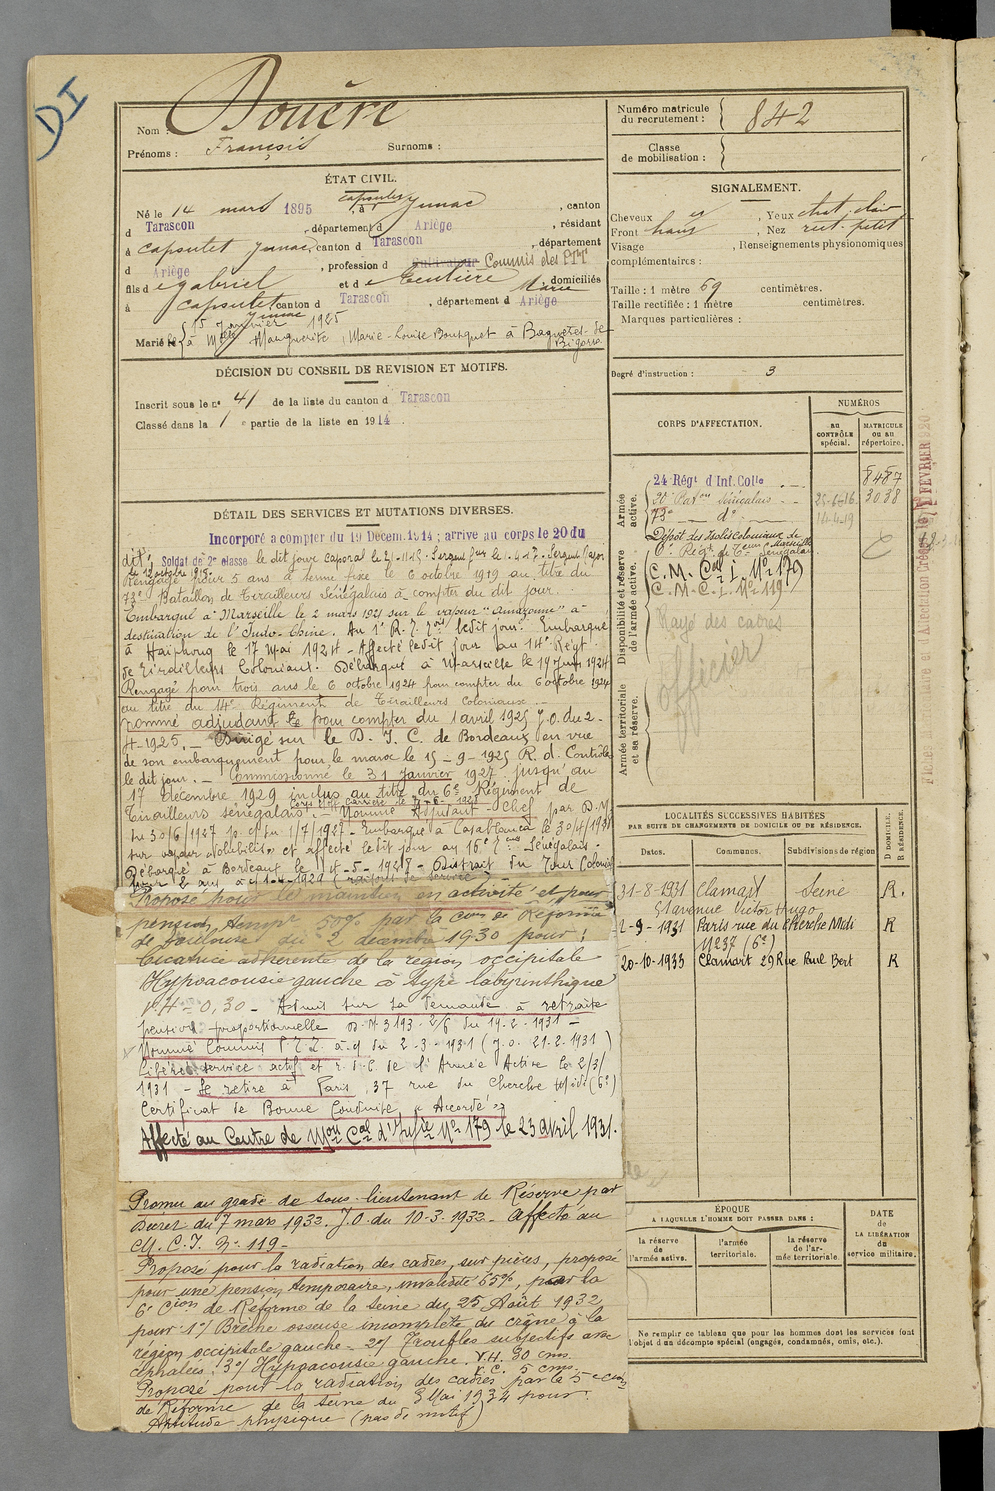 DI
Nom : Douère
Prénoms : François Surnoms :
ÉTAT CIVIL.
Né le 14 mars 1895, à Capoulet Junac, canton
d Tarascon, département d Ariège, résidant
à Capoulet Junac, canton d Tarascon, département
d Ariège, profession d Cultivateur Commis des PTT
fils d e Gabriel et d e Eentière Marie domiciliés
à Capoulet Junac, canton d Tarascon, département d Ariège
Marié le 15 Janvier 1925
à Mlle Marguerite, Marie-Louise Bousquet à Bagnères-de-Bigorre
DÉCISION DU CONSEIL DE REVISION ET MOTIFS.
Inscrit sous le n° 41 de la liste du canton d Tarascon
Classé dans la 1 e partie de la liste en 1914.
DÉTAIL DES SERVICES ET MUTATIONS DIVERSES.
Incorporé à compter du 19 Décem. 1914 ; arrivé au corps le 20 du
dit. Soldat de 2e classe le dit jour Caporal le 21-11-15. Sergent
le 12 octobre 1915.
Rengagé pour 5 ans à terme fixe le 6 octobre 1919 au titre du
73e Bataillon de Tirailleurs Sénégalais à compter du dit jour.
Embarqué à Marseille le 2 mars 1921 sur le vapeur "Amazone" à
destination de l'Indo-Chine. Au 1e R. T. ledit jour. Embarqué
à Haïphong le 17 Mai 1924 - Affecté ledit jour au 14e Régt
de Tirailleurs Coloniaux. Débarqué à Marseille le 19 Juin 1924
Rengagé pour trois ans le 6 octobre 1924 pour compter du 6 octobre 1924
au titre du 14e Régiment de Tirailleurs Coloniaux
nommé adjudant le pour compter du 1 avril 1925 J.O. du 2-
4-1925. - Dirigé sur le D. I. C. de Bordeaux en vue
de son embarquement pour le Maroc le 15-9-1925 R. d. Contrôles
le dit jour. - Commissionné le 31 Janvier 1927 jusqu'au
17 décembre 1929 inclus au titre du 6e Régiment de
Tirailleurs sénégalais. - Nommé Adjudant-Chef par D.M
du 30/6/1927 p. c. du 1/7/1927 - Embarqué à Casablanca le 30/4/1928
sur vapeur Volubilis et affecté ledit jour au 16e Sénégalais.
Débarqué à Bordeaux le 4-5-1928 - Distrait du Tour Colonial
pour 2 ans
Proposé pour le maintien en activité et pour
pension tempre 50% par la Cion de Réforme
de Toulouse du 2 décembre 1930 pour :
Cicatrice adhérente de la région occipitale
Hypoacousie gauche à type labyrinthique
V.H = 0,30 - Admis sur sa demande à retraite
pension proportionnelle D. M 3193. 2/6 du 19-2-1931 -
Nommé Commis P.T.T. à.c du 2-3-1931 (J.O. 21-2-1931)
Libéré service actif et r. d. C de l'Armée Active le 2/3/
1931 - Se retire à Paris, 37 rue du Cherche Midi (6e)
Certificat de Bonne Conduite "Accordé"
Affecté au Centre de Mon Cal d'Infie No 179 le 23 avril 1931.
Promu au grade de sous-lieutenant de Réserve par
Décret du 7 mars 1932. J.O. du 10-3-1932 - Affecté au
C.M.C.I. No 119 -
Proposé pour la radiation des cadres, sur pièces, proposé
pour une pension temporaire, invalidité 65%, par la
6e Cion de Réforme de la Seine du 25 Août 1932
pour 1°/ Brèche osseuse incomplète du crâne à la
région occipitale gauche - 2°/ Troubles subjectifs avec
céphalées. 3°/ Hypoacousie gauche. V.H. 30 cms.
V.C. 5 cms.
Proposé pour la radiation des cadres par la 5e Cion
de Réforme de la Seine du 3 Mai 1934 pour
Aptitude physique (pas de motif)
Numéro matricule du recrutement : 842
Classe de mobilisation :
SIGNALEMENT.
Cheveux, Yeux chat. clair
Front haut, Nez rect. petit
Visage, Renseignements physionomiques
complémentaires :
Taille : 1 mètre 69 centimètres.
Taille rectifiée : 1 mètre centimètres.
Marques particulières :
Degré d'instruction : 3
CORPS D'AFFECTATION.
NUMÉROS
au CONTRÔLE spécial.
MATRICULE ou au répertoire.
Armée active.
24 Régt d'Inf. Colle 8487
Baton Sénégalais 25-6-16. 3038
73e do 14-4-19
Disponibilité et réserve de l'armée active.
Dépôt des Isolés Coloniaux de Marseille
6e Régt de Teurs Sénégalais
C. M. Cal I. No 179
C. M. C. I. No 119
Rayé des cadres
Officier
Armée territoriale et sa réserve.
LOCALITÉS SUCCESSIVES HABITÉES
PAR SUITE DE CHANGEMENTS DE DOMICILE OU DE RÉSIDENCE.
Dates. Communes. Subdivisions de région
D DOMICILE. R RÉSIDENCE.
31-8-1931 Clamart Seine R.
51 avenue Victor Hugo
2-9-1931 Paris rue du Cherche Midi R
No 37 (6e)
20-10-1933 Clamart 29 Rue Paul Bert R
ÉPOQUE
A LAQUELLE L'HOMME DOIT PASSER DANS :
la réserve de l'armée active.
l'armée territoriale.
la réserve de l'armée territoriale.
DATE de LA LIBÉRATION du service militaire.
Ne remplir ce tableau que pour les hommes dont les services font
l'objet d'un décompte spécial (engagés, condamnés, omis, etc.).